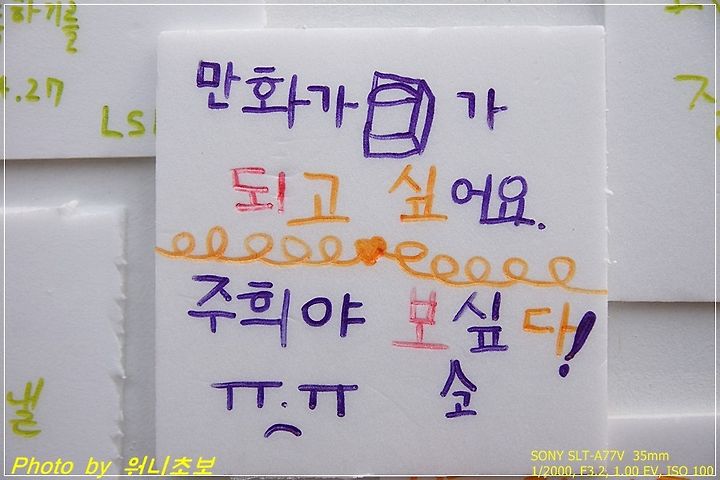 하기를
.27
LS
만화가 가
되고 싶어요.
주희야 보싶다!
ㅠ.ㅠ 소
낼
Photo by 워니초보
SONY SLT-A77V 35mm
1/2000, F3.2, 1.00 EV, ISO 100